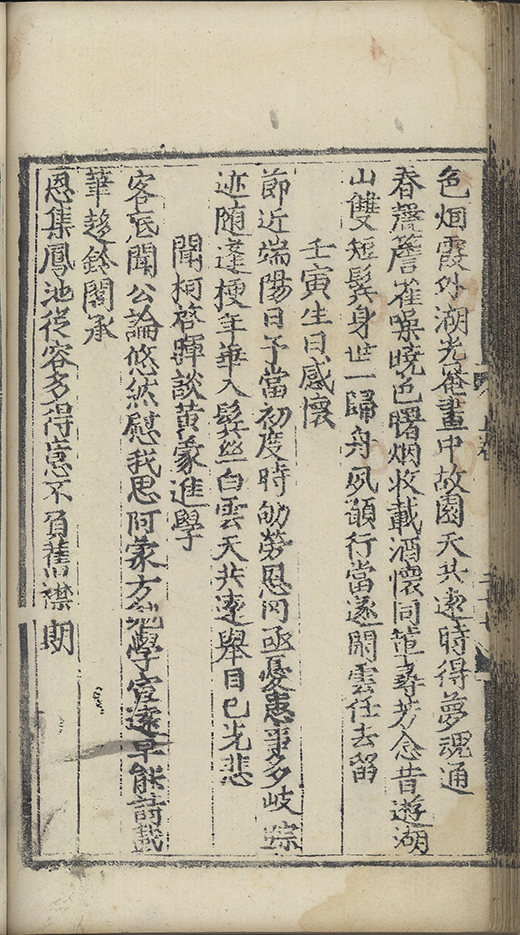 色烟霞外湖光菴畫中故園天共遠時得夢魂通
春聲簷雀噪曉色曙烟收載酒懷同輩尋芳念昔遊湖
山雙短鬂身世一歸舟夙願行當遂閑雲任去留
壬寅生日感懷
節近端陽日予當初度時劬勞恩罔極憂患事多岐踪
迹随蓬梗年華入鬂絲白雲天共遠舉目已先悲
聞柯啓暉談黄蒙進學
客底聞公論悠然慰我思阿蒙方力學宦達早能詩載
筆趍鈴閣承
恩集鳳池從容多得意不負舊襟期